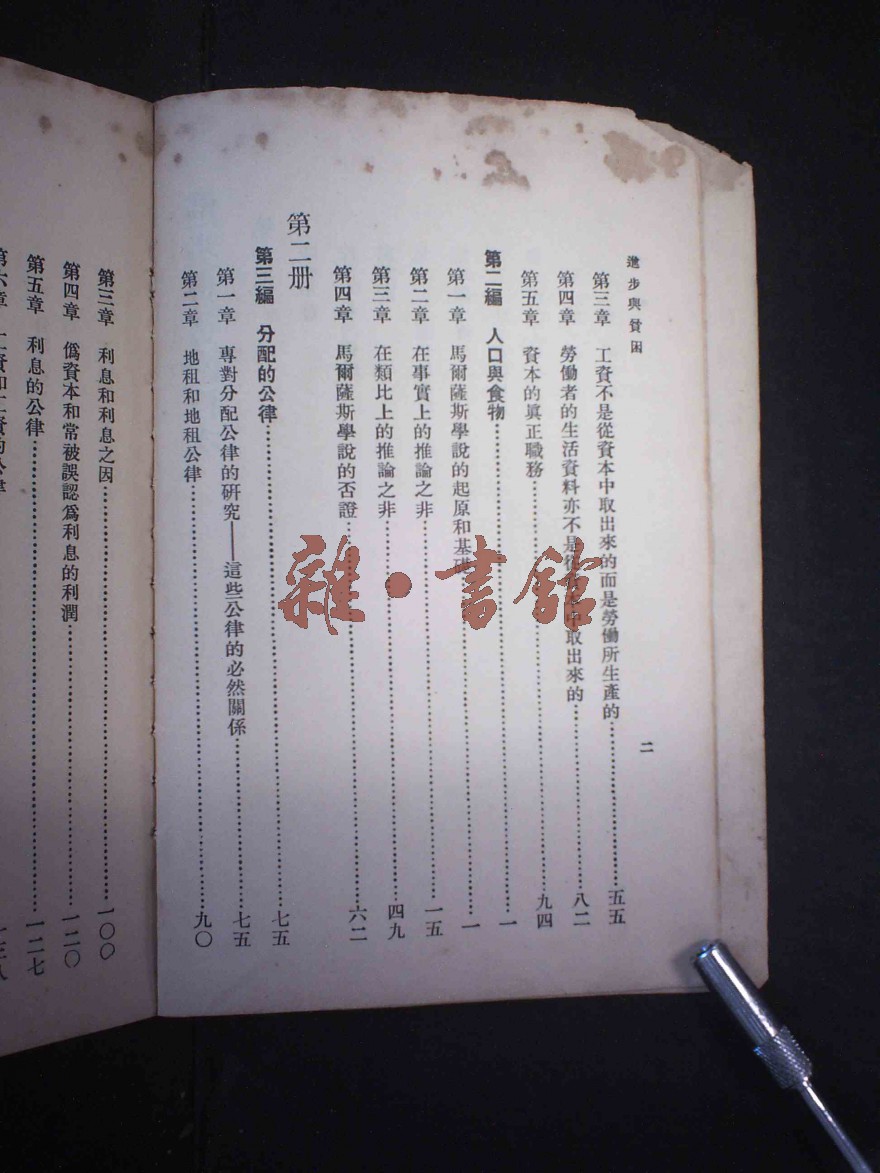 進步與貧困
二
第三章 工資不是從資本中取出來的而是勞働所生產的……五五
第四章 勞働者的生活資料亦不是從資本中取出來的……八二
第五章 資本的眞正職務……九四
第二編 人口與食物……一
第一章 馬爾薩斯學說的起原和基礎……一
第二章 在事實上的推論之非……一五
第三章 在類比上的推論之非……四九
第四章 馬爾薩斯學說的否證……六二
第二册
第三編 分配的公律……七五
第一章 專對分配公律的研究——這些公律的必然關係……七五
第二章 地租和地租公律……九〇
第三章 利息和利息之因……一〇〇
第四章 僞資本和常被誤認爲利息的利潤……一二〇
第五章 利息的公律……一二七
第六章 工資和工資的公律……一三八
雜·書館